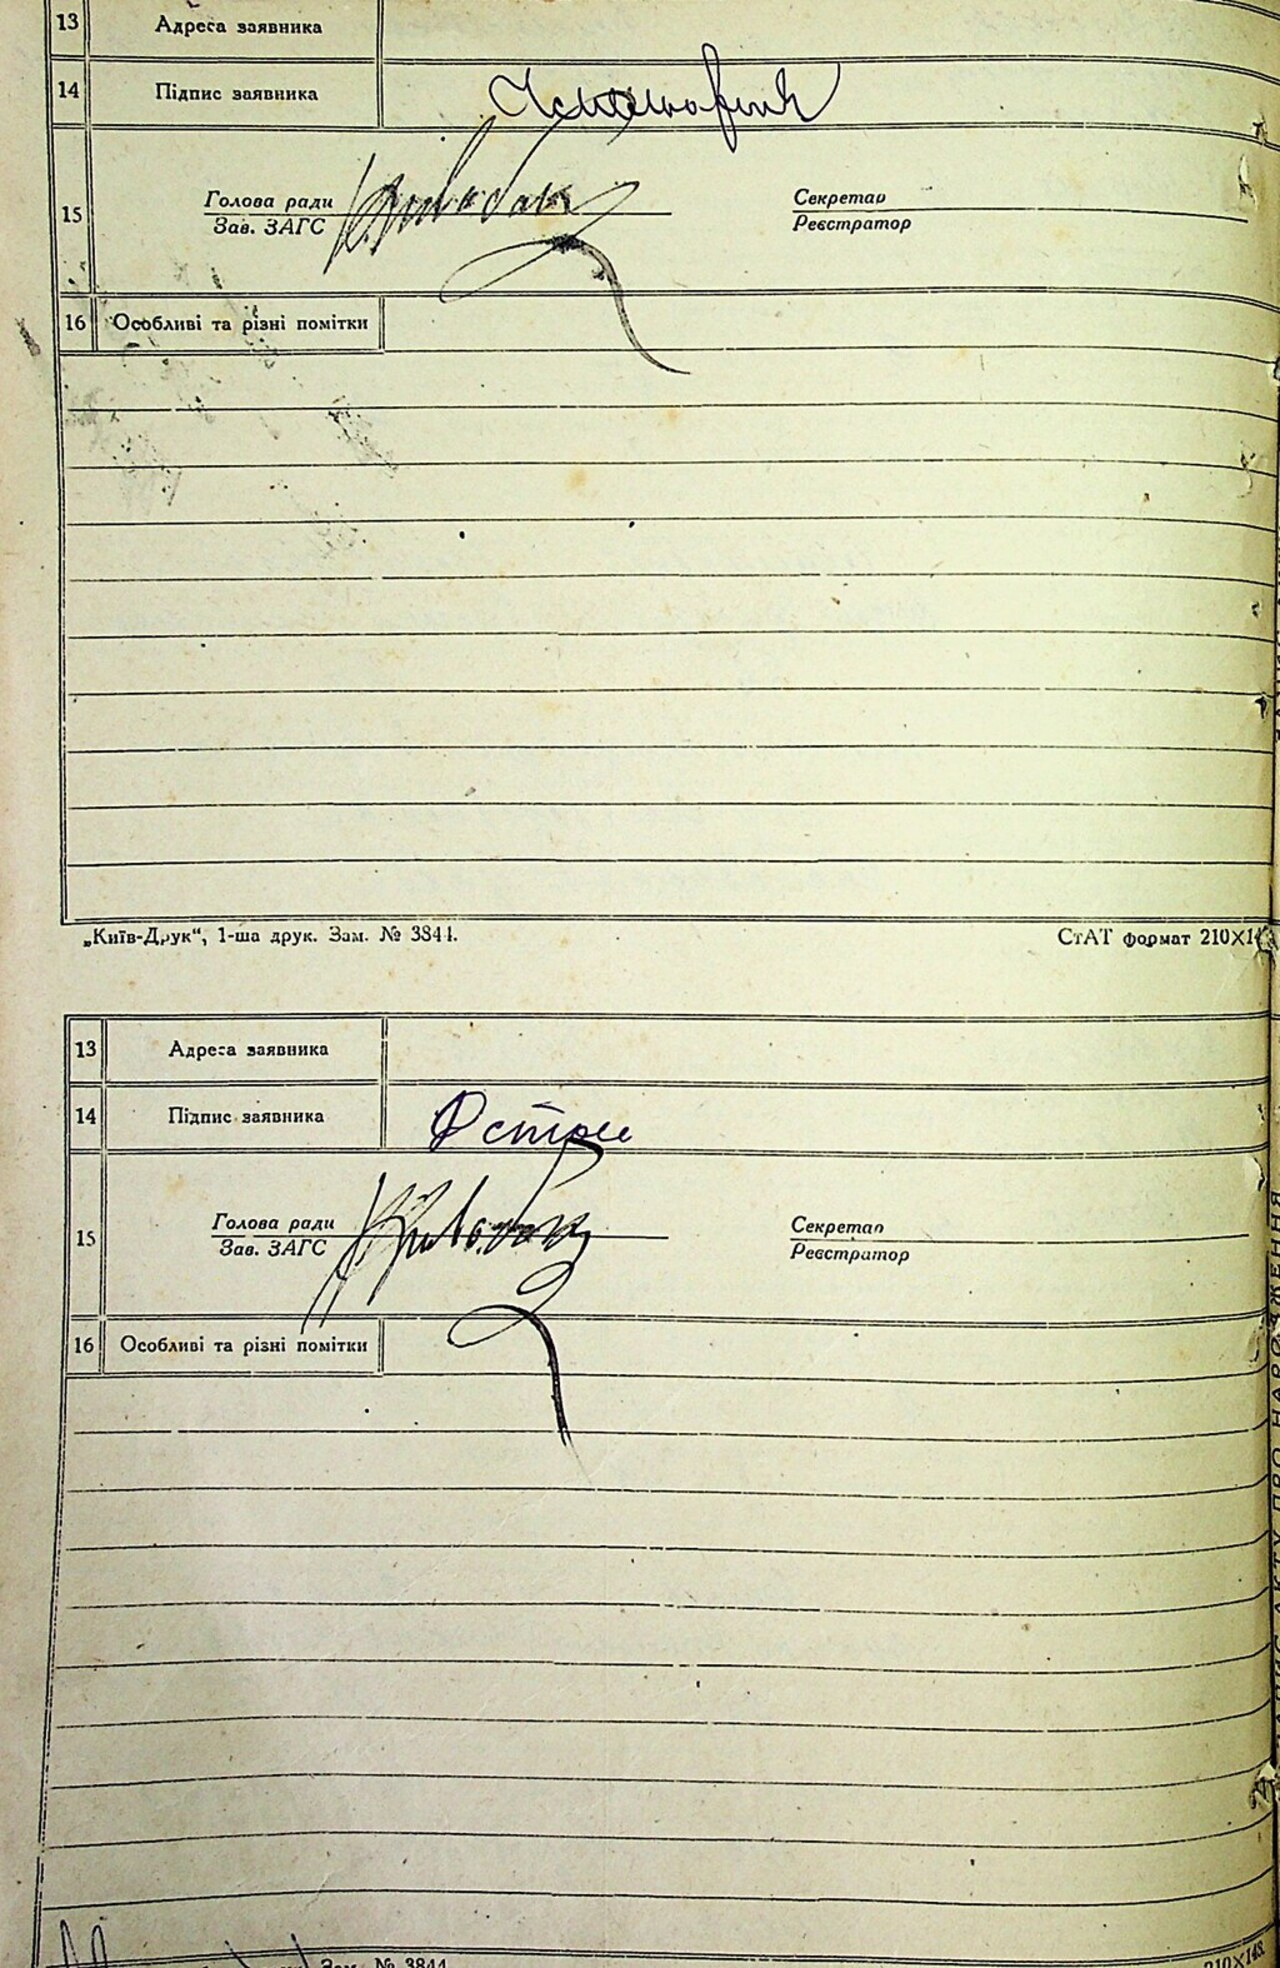 13 Адреса заявника
14 Підпис заявника
15 Голова ради
Зав. ЗАГС
Секретар
Реєстратор
16 Особливі та різні помітки
„Київ-Друк“, 1-ша друк. Зам. № 3844. СтАТ формат 210X14
13 Адреса заявника
14 Підпис заявника
15 Голова ради
Зав. ЗАГС
Секретар
Реєстратор
16 Особливі та різні помітки
Зам. № 3844
210X148.